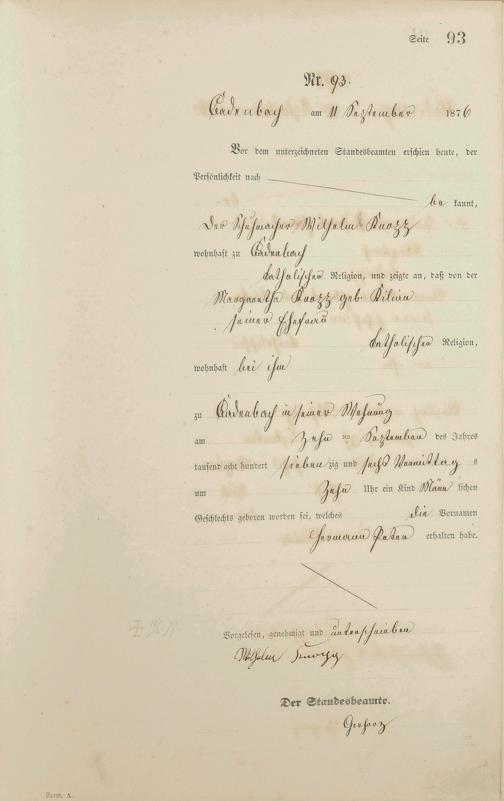 Seite 93
Nr. 93.
Cadenbach am 11 September 1876
Vor dem unterzeichneten Standesbeamten erschien heute, der
Persönlichkeit nach
be kannt,
der Schuhmacher Wilhelm Knopp
wohnhaft zu Cadenbach
katholischer Religion, und zeigte an, daß von der
Margaretha Knopp geb Kilian
seiner Ehefrau
katholischer Religion,
wohnhaft bei ihm
zu Cadenbach in seiner Wohnung
am zehn September des Jahres
tausend acht hundert siebenzig und sechs Vormittag s
um zehn Uhr ein Kind männlichen
Geschlechts geboren worden sei, welches die Vornamen
Hermann Peter erhalten habe.
Vorgelesen, genehmigt und unterschrieben
Wilhelm Knopp
Der Standesbeamte.
Form. A.